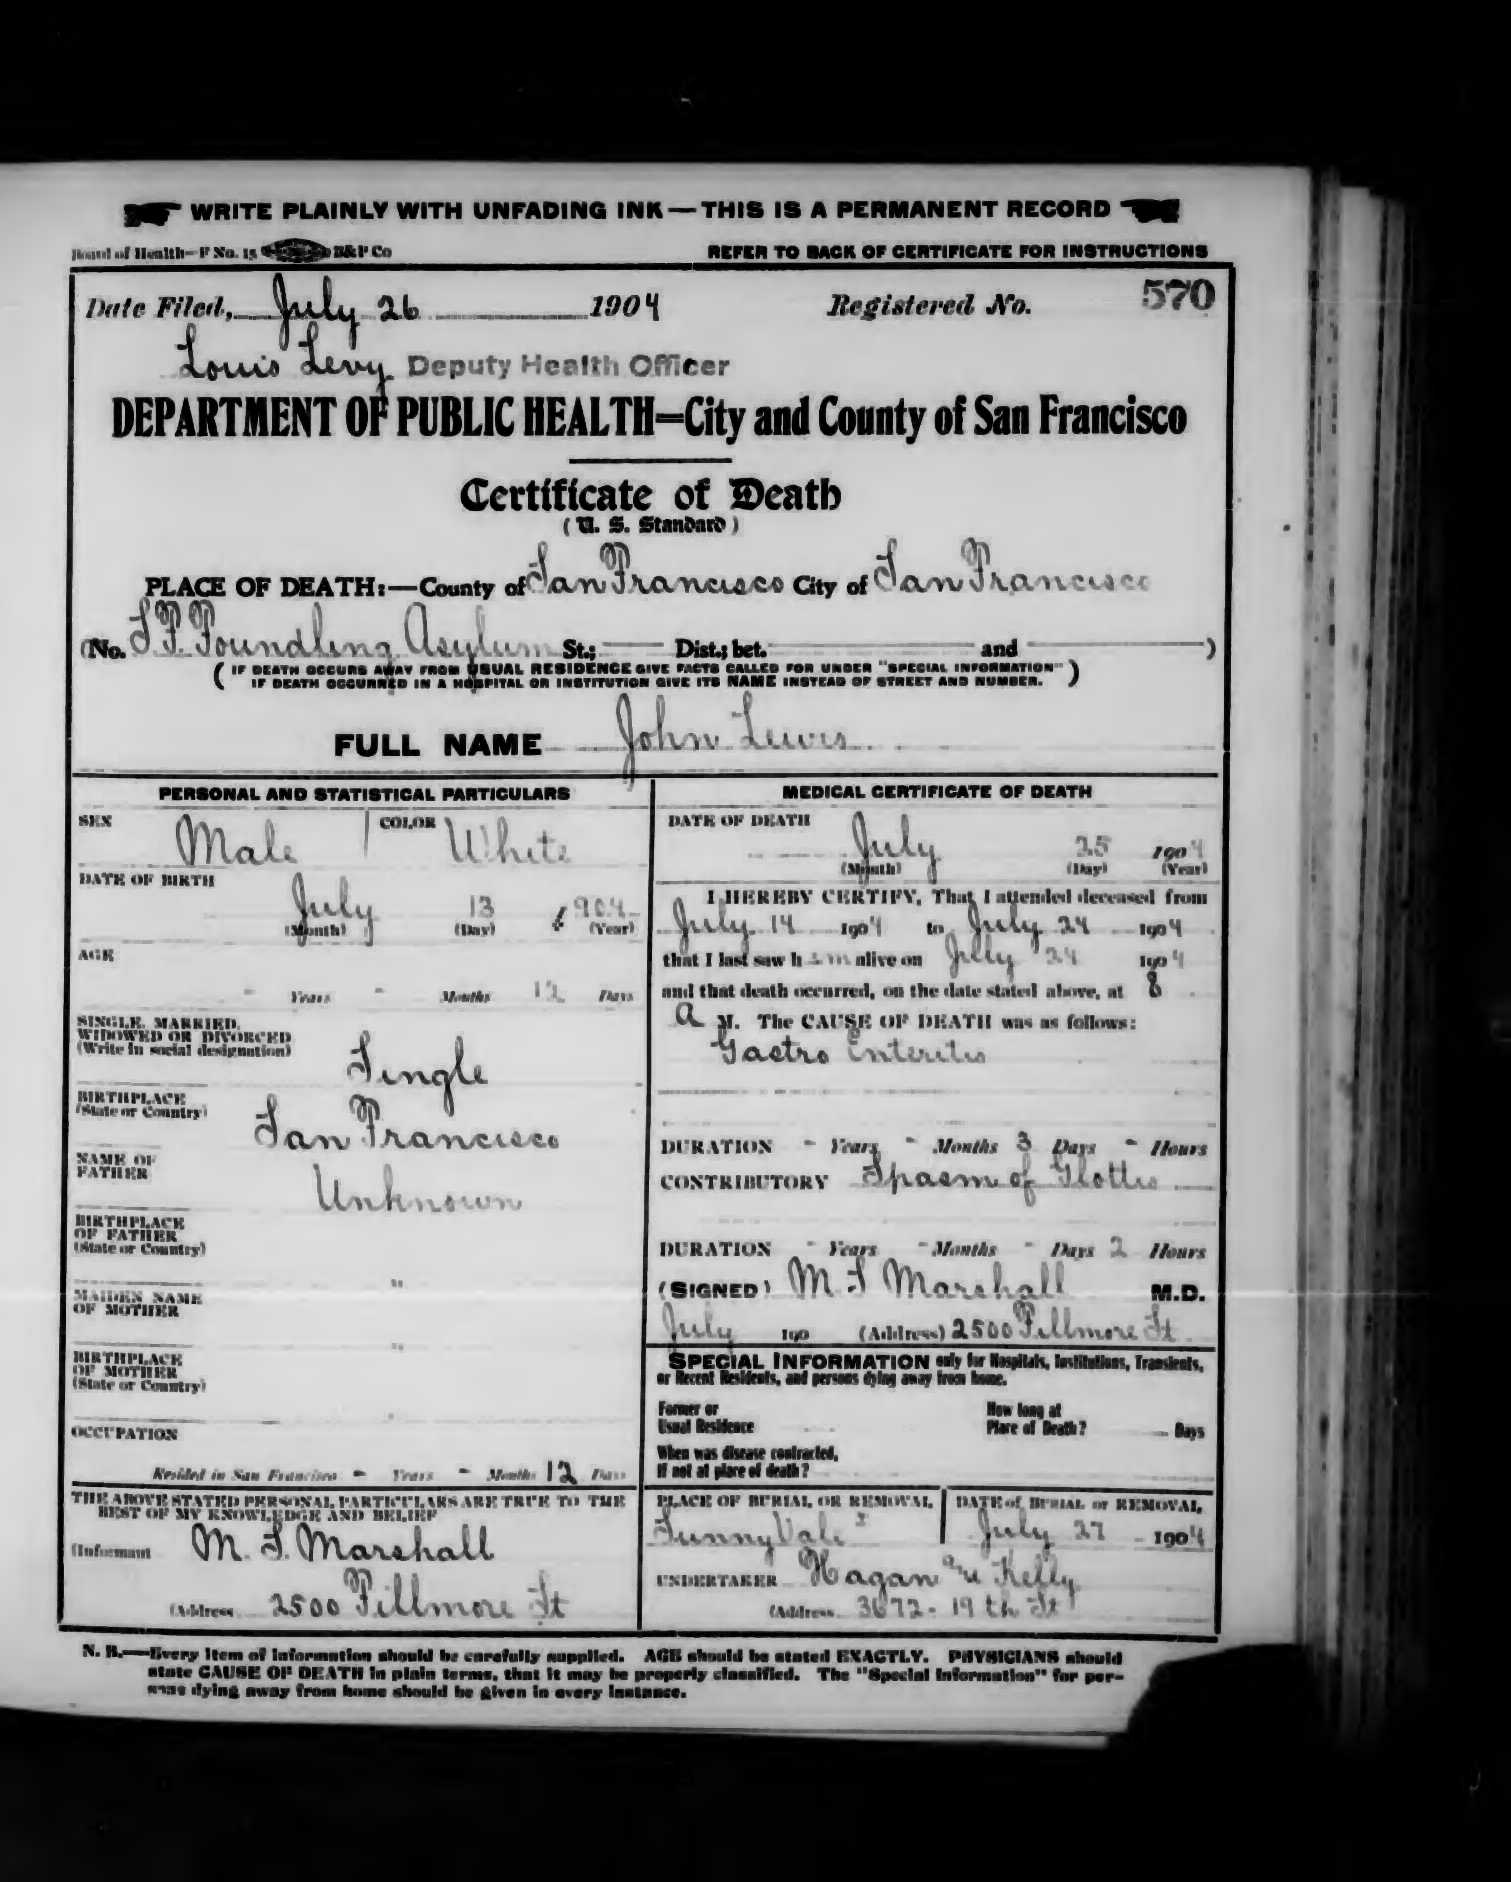 WRITE PLAINLY WITH UNFADING INK — THIS IS A PERMANENT RECORD
Board of Health—F No. 15 B&P Co REFER TO BACK OF CERTIFICATE FOR INSTRUCTIONS
Date Filed, July 26 1904 Registered No. 570
Louis Levy Deputy Health Officer
DEPARTMENT OF PUBLIC HEALTH=City and County of San Francisco
Certificate of Death
(U. S. Standard)
PLACE OF DEATH:—County of San Francisco City of San Francisco
(No. S.F. Foundling Asylum St.; Dist.; bet. and )
( IF DEATH OCCURS AWAY FROM USUAL RESIDENCE GIVE FACTS CALLED FOR UNDER "SPECIAL INFORMATION" )
IF DEATH OCCURRED IN A HOSPITAL OR INSTITUTION GIVE ITS NAME INSTEAD OF STREET AND NUMBER.
FULL NAME John Lewis
PERSONAL AND STATISTICAL PARTICULARS
SEX Male COLOR White
DATE OF BIRTH
July 13 1904
(Month) (Day) (Year)
AGE
- Years - Months 12 Days
SINGLE, MARRIED,
WIDOWED OR DIVORCED
(Write in social designation)
Single
BIRTHPLACE
(State or Country)
San Francisco
NAME OF
FATHER
Unknown
BIRTHPLACE
OF FATHER
(State or Country)
"
MAIDEN NAME
OF MOTHER
"
BIRTHPLACE
OF MOTHER
(State or Country)
OCCUPATION
Resided in San Francisco - Years - Months 12 Days
THE ABOVE STATED PERSONAL PARTICULARS ARE TRUE TO THE
BEST OF MY KNOWLEDGE AND BELIEF
(Informant M. S. Marshall
(Address 2500 Fillmore St
MEDICAL CERTIFICATE OF DEATH
DATE OF DEATH
July 25 1904
(Month) (Day) (Year)
I HEREBY CERTIFY, That I attended deceased from
July 14 1904 to July 24 1904
that I last saw him alive on July 24 1904
and that death occurred, on the date stated above, at 8
A M. The CAUSE OF DEATH was as follows:
Gastro Enteritis
DURATION - Years - Months 3 Days - Hours
CONTRIBUTORY Spasm of Glottis
DURATION - Years - Months - Days 2 Hours
(SIGNED) M S Marshall M.D.
July 190 (Address) 2500 Fillmore St
SPECIAL INFORMATION only for Hospitals, Institutions, Transients,
or Recent Residents, and persons dying away from home.
Former or
Usual Residence
How long at
Place of Death? Days
When was disease contracted,
If not at place of death?
PLACE OF BURIAL OR REMOVAL
Sunny Vale
DATE of BURIAL or REMOVAL
July 27 1904
UNDERTAKER Hagan and Kelly
(Address 3672 - 19th St
N. B.—Every item of information should be carefully supplied. AGE should be stated EXACTLY. PHYSICIANS should
state CAUSE OF DEATH in plain terms, that it may be properly classified. The "Special Information" for per-
sons dying away from home should be given in every instance.